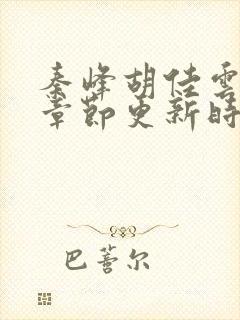 秦峰胡佳雲
章節更新時
巴蒈尔